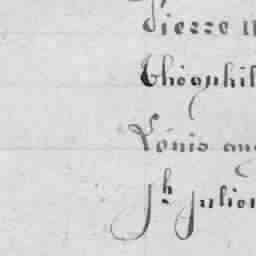 Pierre
Théophil
Louis aug
Jh Julien